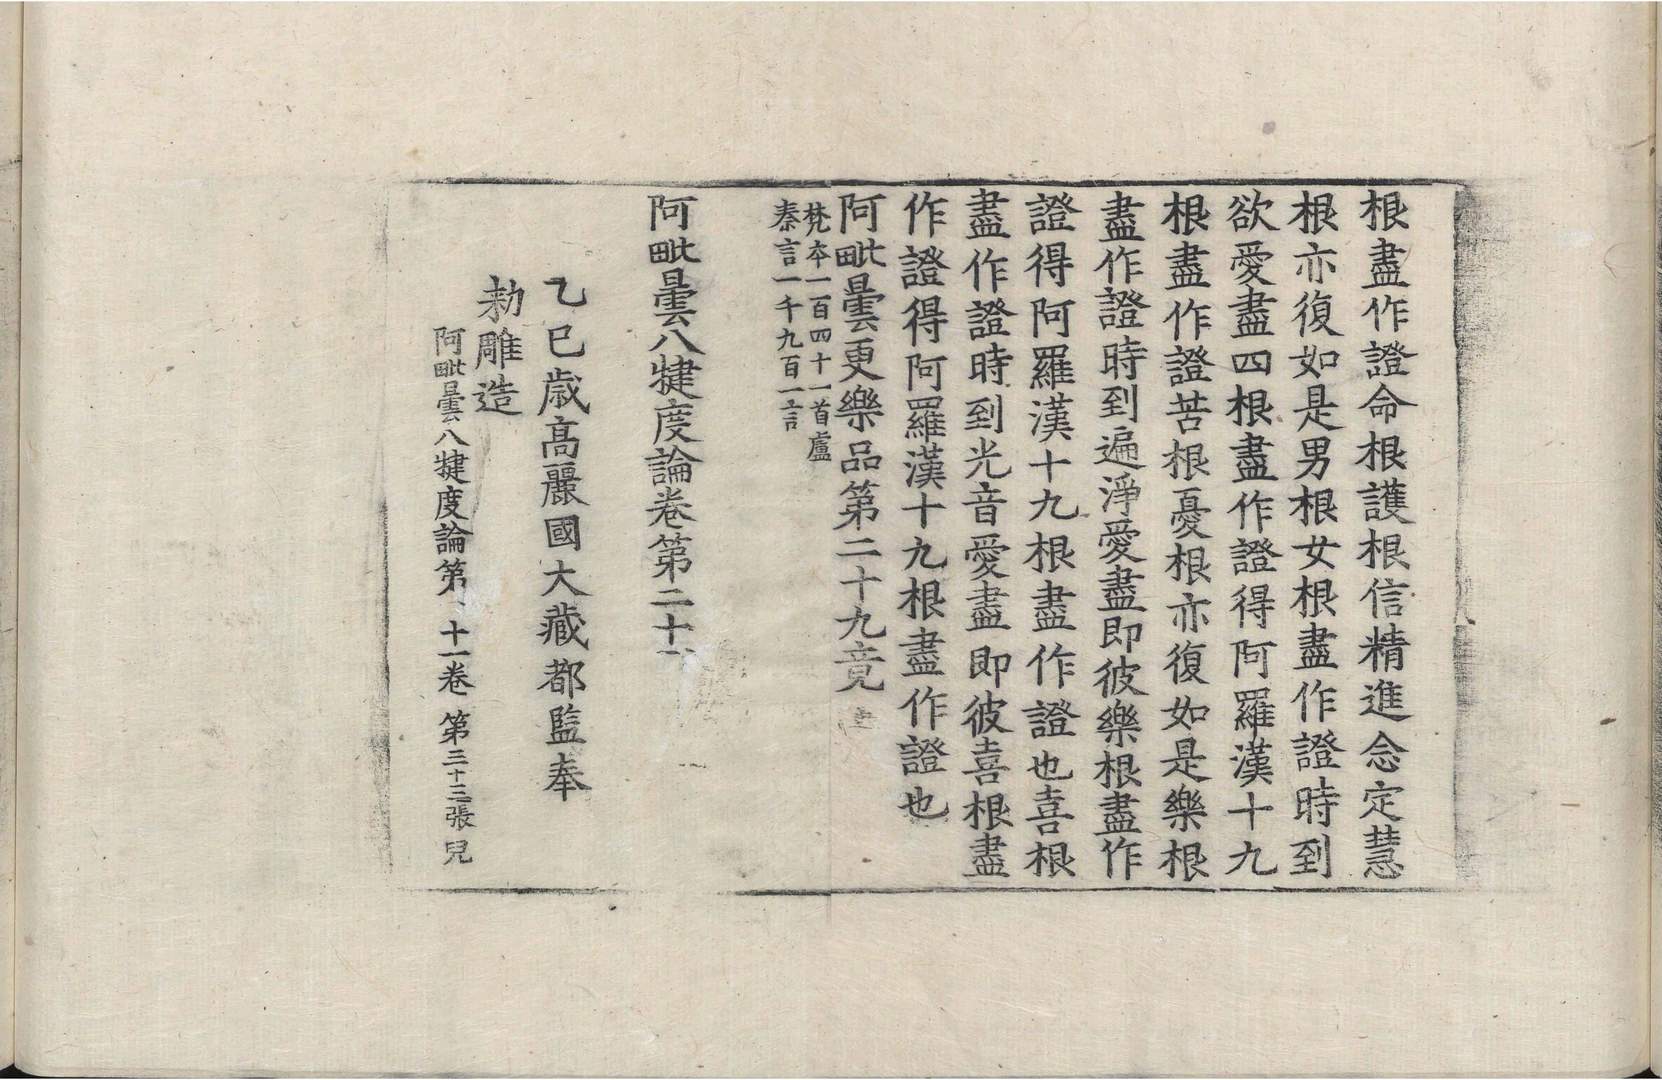 根盡作證命根護根信精進念定慧
根亦復如是男根女根盡作證時到
欲愛盡四根盡作證得阿羅漢十九
根盡作證苦根憂根亦復如是樂根
盡作證時到遍淨愛盡即彼樂根盡作
證得阿羅漢十九根盡作證也喜根
盡作證時到光音愛盡即彼喜根盡
作證得阿羅漢十九根盡作證也
阿毗曇更樂品第二十九竟
梵本一百四十一首盧
秦言一千九百一言
阿毗曇八犍度論卷第二十一
乙巳歲高麗國大藏都監奉
勅雕造
阿毗曇八犍度論第 十一卷 第三十三張 兒